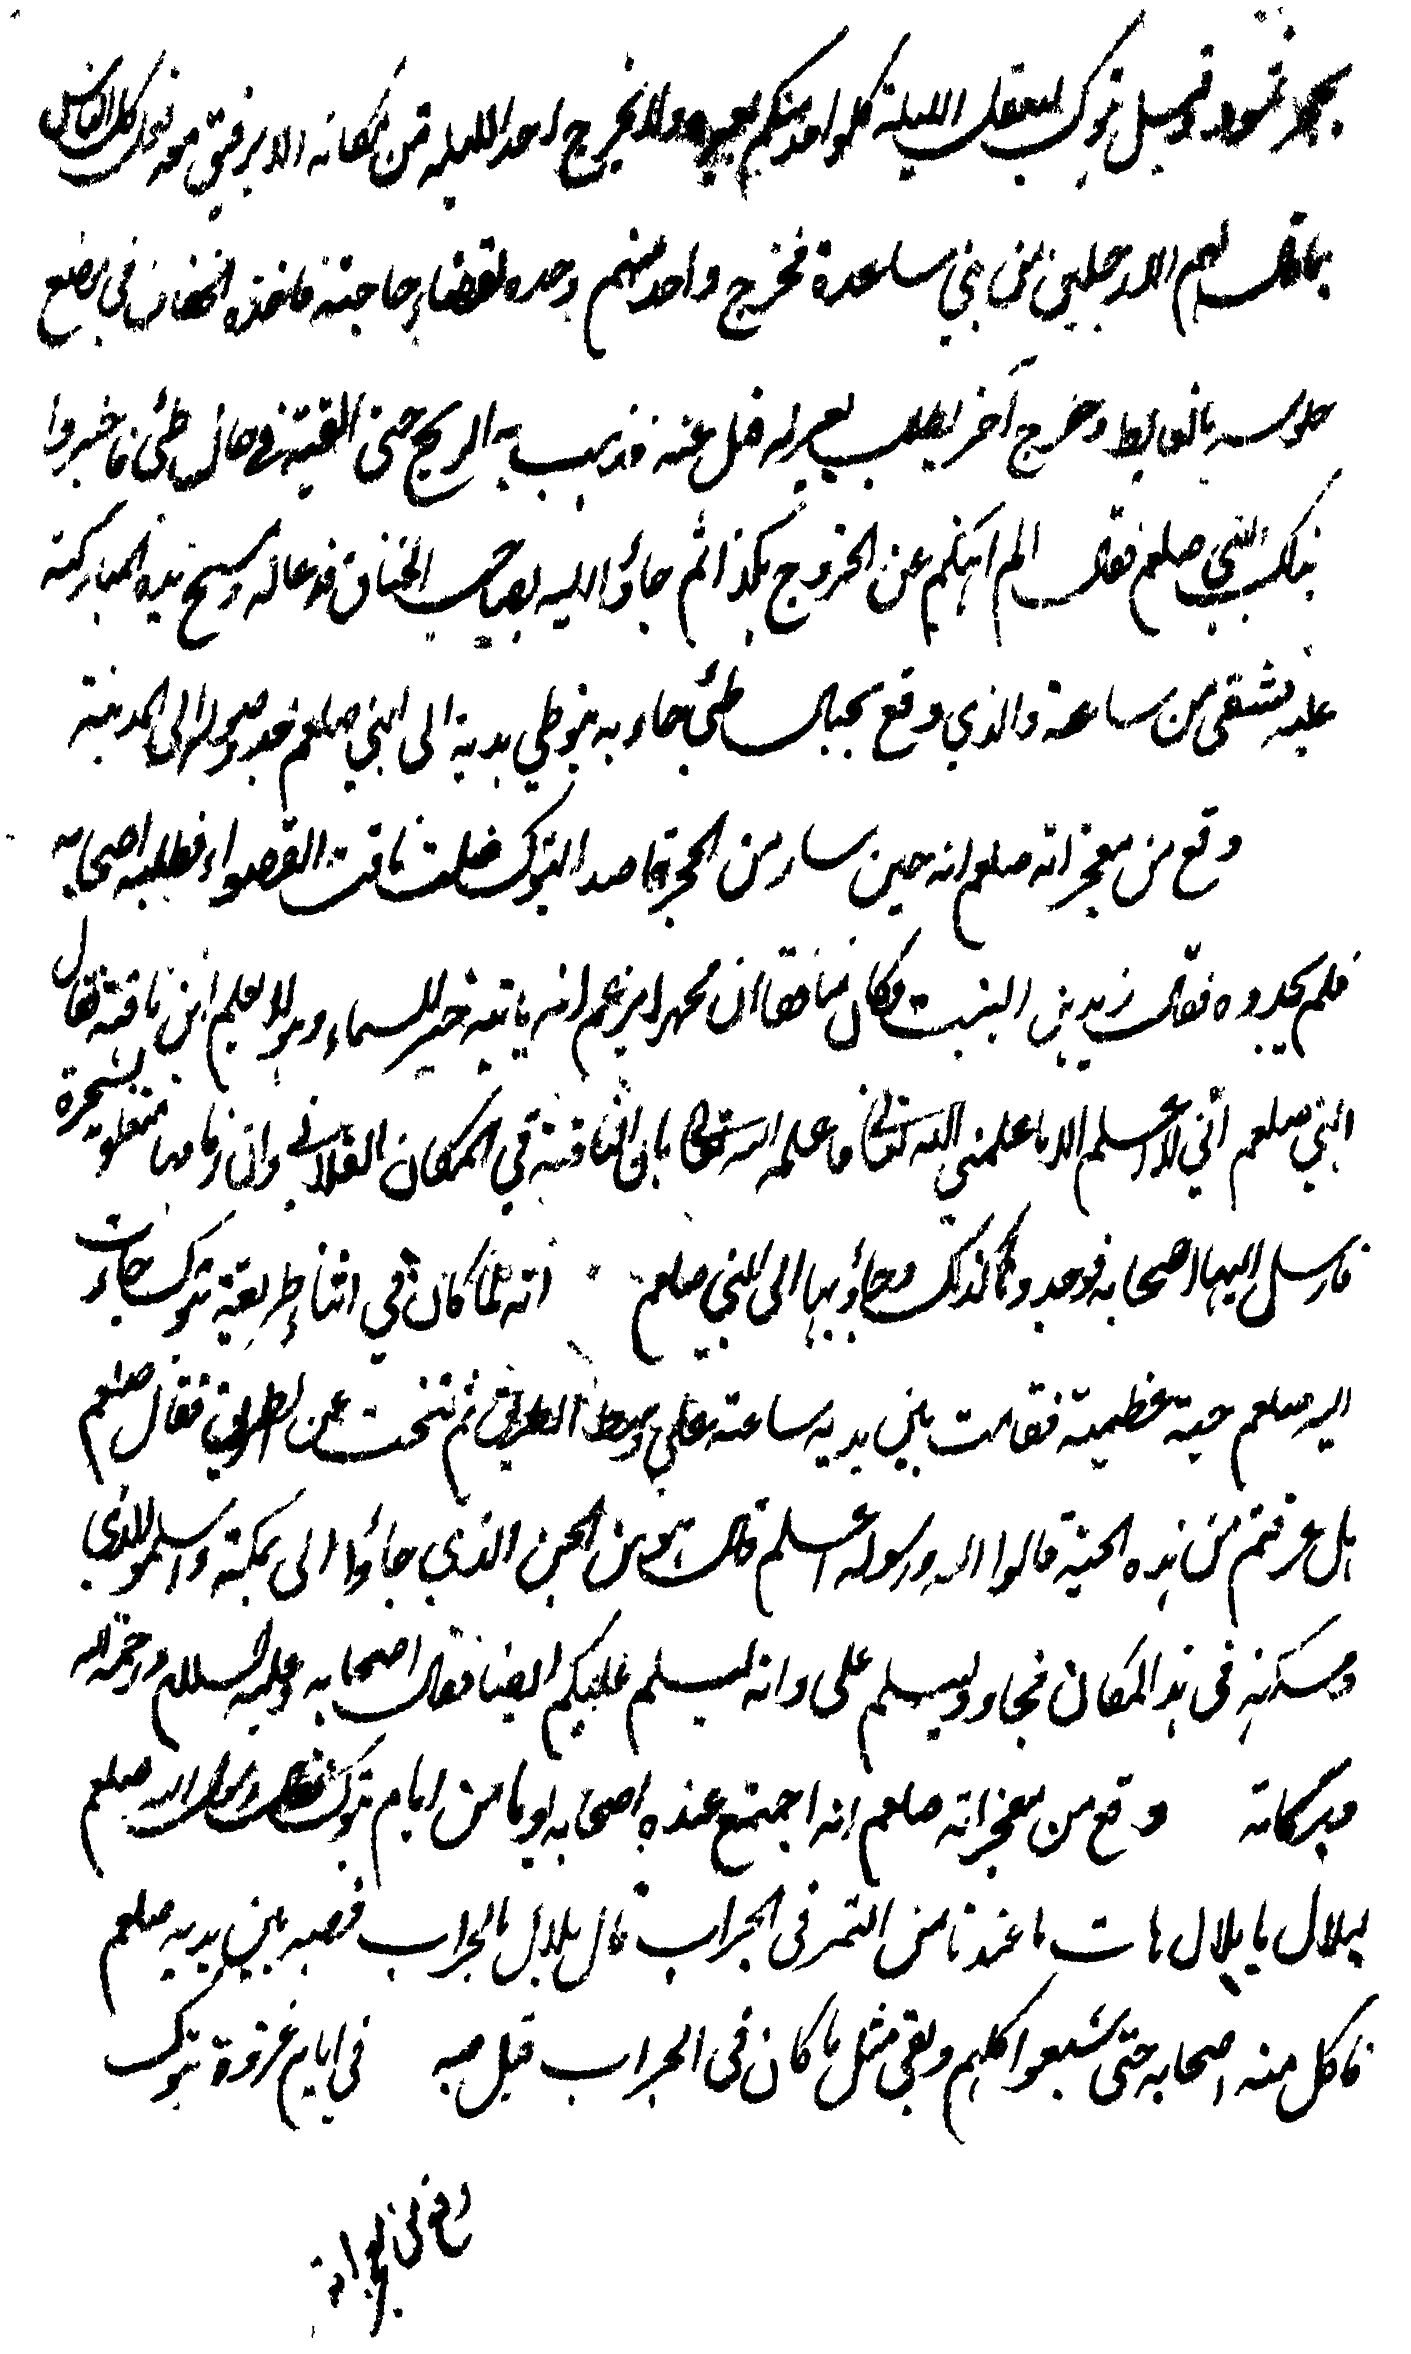 بحجر ثمود قبيل تبوك ليعقل الليلة كل واحد منكم بعيره ولا يخرج احد الليلة من مكانه الا برفيق معه ففعل كل الناس
ما قال لهم الا رجلين من بني ساعدة فخرج واحد منهم وحده لقضاء حاجته فاخذه الخناق في موضع
جلوسه بالغايط وخرج آخر يطلب بعير له ضل عنه فذهب به الريح حتى القته في جبال طئ فاخبروا
بذلك النبي صلعم فقال الم انهكم عن الخروج هكذا ثم جاؤا اليه بصاحب الخناق فدعا له ومسح يده المباركة
عليه فشفى من ساعة والذي وقع بجبال طئ جاء به بنو طي هدية الى النبي صلعم بعد وصوله الى المدينة
وقع من معجزاته صلعم انه حين سار من الحجر قاصد التبوك ضلت ناقته القصواء فطلبه اصحابه
فلم يجدوه فقال زيد بن البيت وكان منافقا ان محمدا يزعم انه ياتيه خبر السماء وهو لا يعلم اين ناقته فقال
النبي صلعم اني لا اعلم الا ما علمني الله تعالى فاعلمه الله تعالى بان الناقة في المكان الفلاني وان زمامها متعلق بشجرة
فارسل اليها اصحابه فوجدوها كذلك وجاؤ بها الى النبي صلعم انه لما كان في اثناء طريقه تبوك جاءت
اليه صلعم حية عظيمة فقامت بين يديه ساعة على وسط الطريق ثم تنحت عن الطريق فقال صلعم
هل عرفتم من هذه الحية قالوا الله ورسوله اعلم قال هو من الجن الذي جاؤا الى بمكة واسلموا الذي
ومسكنه في هذا المكان فجاء وليسلم على وانه ليسلم عليكم ايضا فقال اصحابه وعليه السلام ورحمة الله
وبركاته وقع من معجزاته صلعم انه اجتمع عنده اصحابه يوما من ايام تبوك فقال رسول الله صلعم
لبلال يا بلال هات ما عندنا من التمر في الجراب قال بلال بالجراب فصبه بين يديه صلعم
فاكل منه اصحابه حتى شبعوا كلهم وبقي مثل ما كان في الجراب قبل صبه في ايام غزوة تبوك